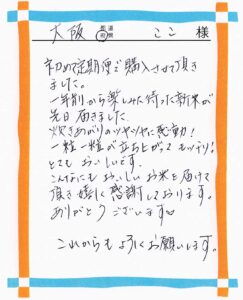 大阪 都道府県 ここ 様
初めて定期便で購入させて頂き
ました。
一年前から楽しみに待った新米が
先日届きました。
炊きあがりのツヤツヤに感動!
一粒一粒が立ち上がってモッチリ!
とても おいしいです。
こんなにも おいしい お米を届けて
頂き嬉しく感謝しております。
ありがとう ございます♡
これからも よろしくお願いします。